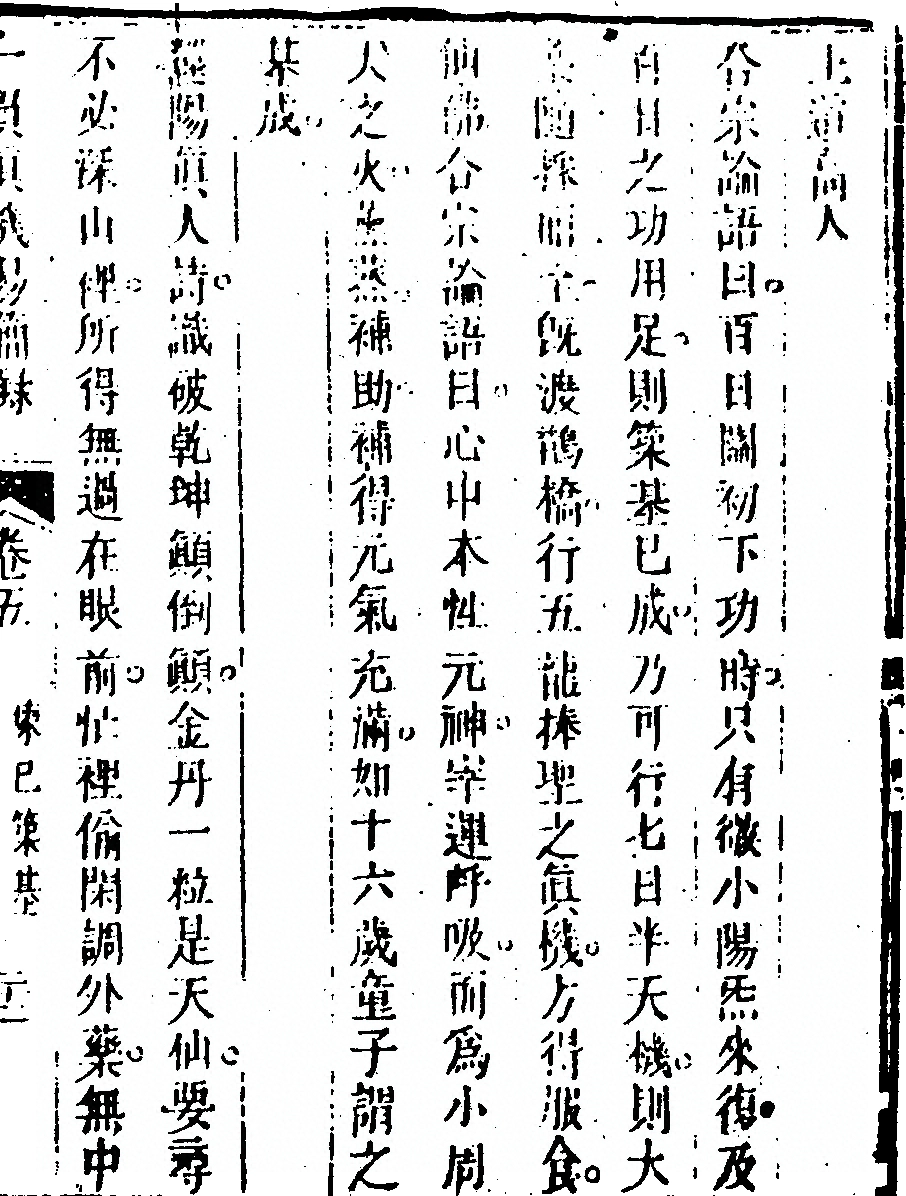 上道高人
合宗論語曰百日關初下功時只有微小陽炁來復及
百日之功用足則築基已成乃可行七日半天機則大
藥隨採而至旣渡鵲橋行五龍捧聖之眞機方得服食
仙佛合宗論語曰心中本性元神宰運呼吸而爲小周
天之火薰蒸補助補得元氣充滿如十六歲童子謂之
基成
純陽眞人詩識破乾坤顚倒顚金丹一粒是天仙要尋
不必深山裡所得無過在眼前忙裡偷閑調外藥無中
眞機易簡錄 卷五 築基